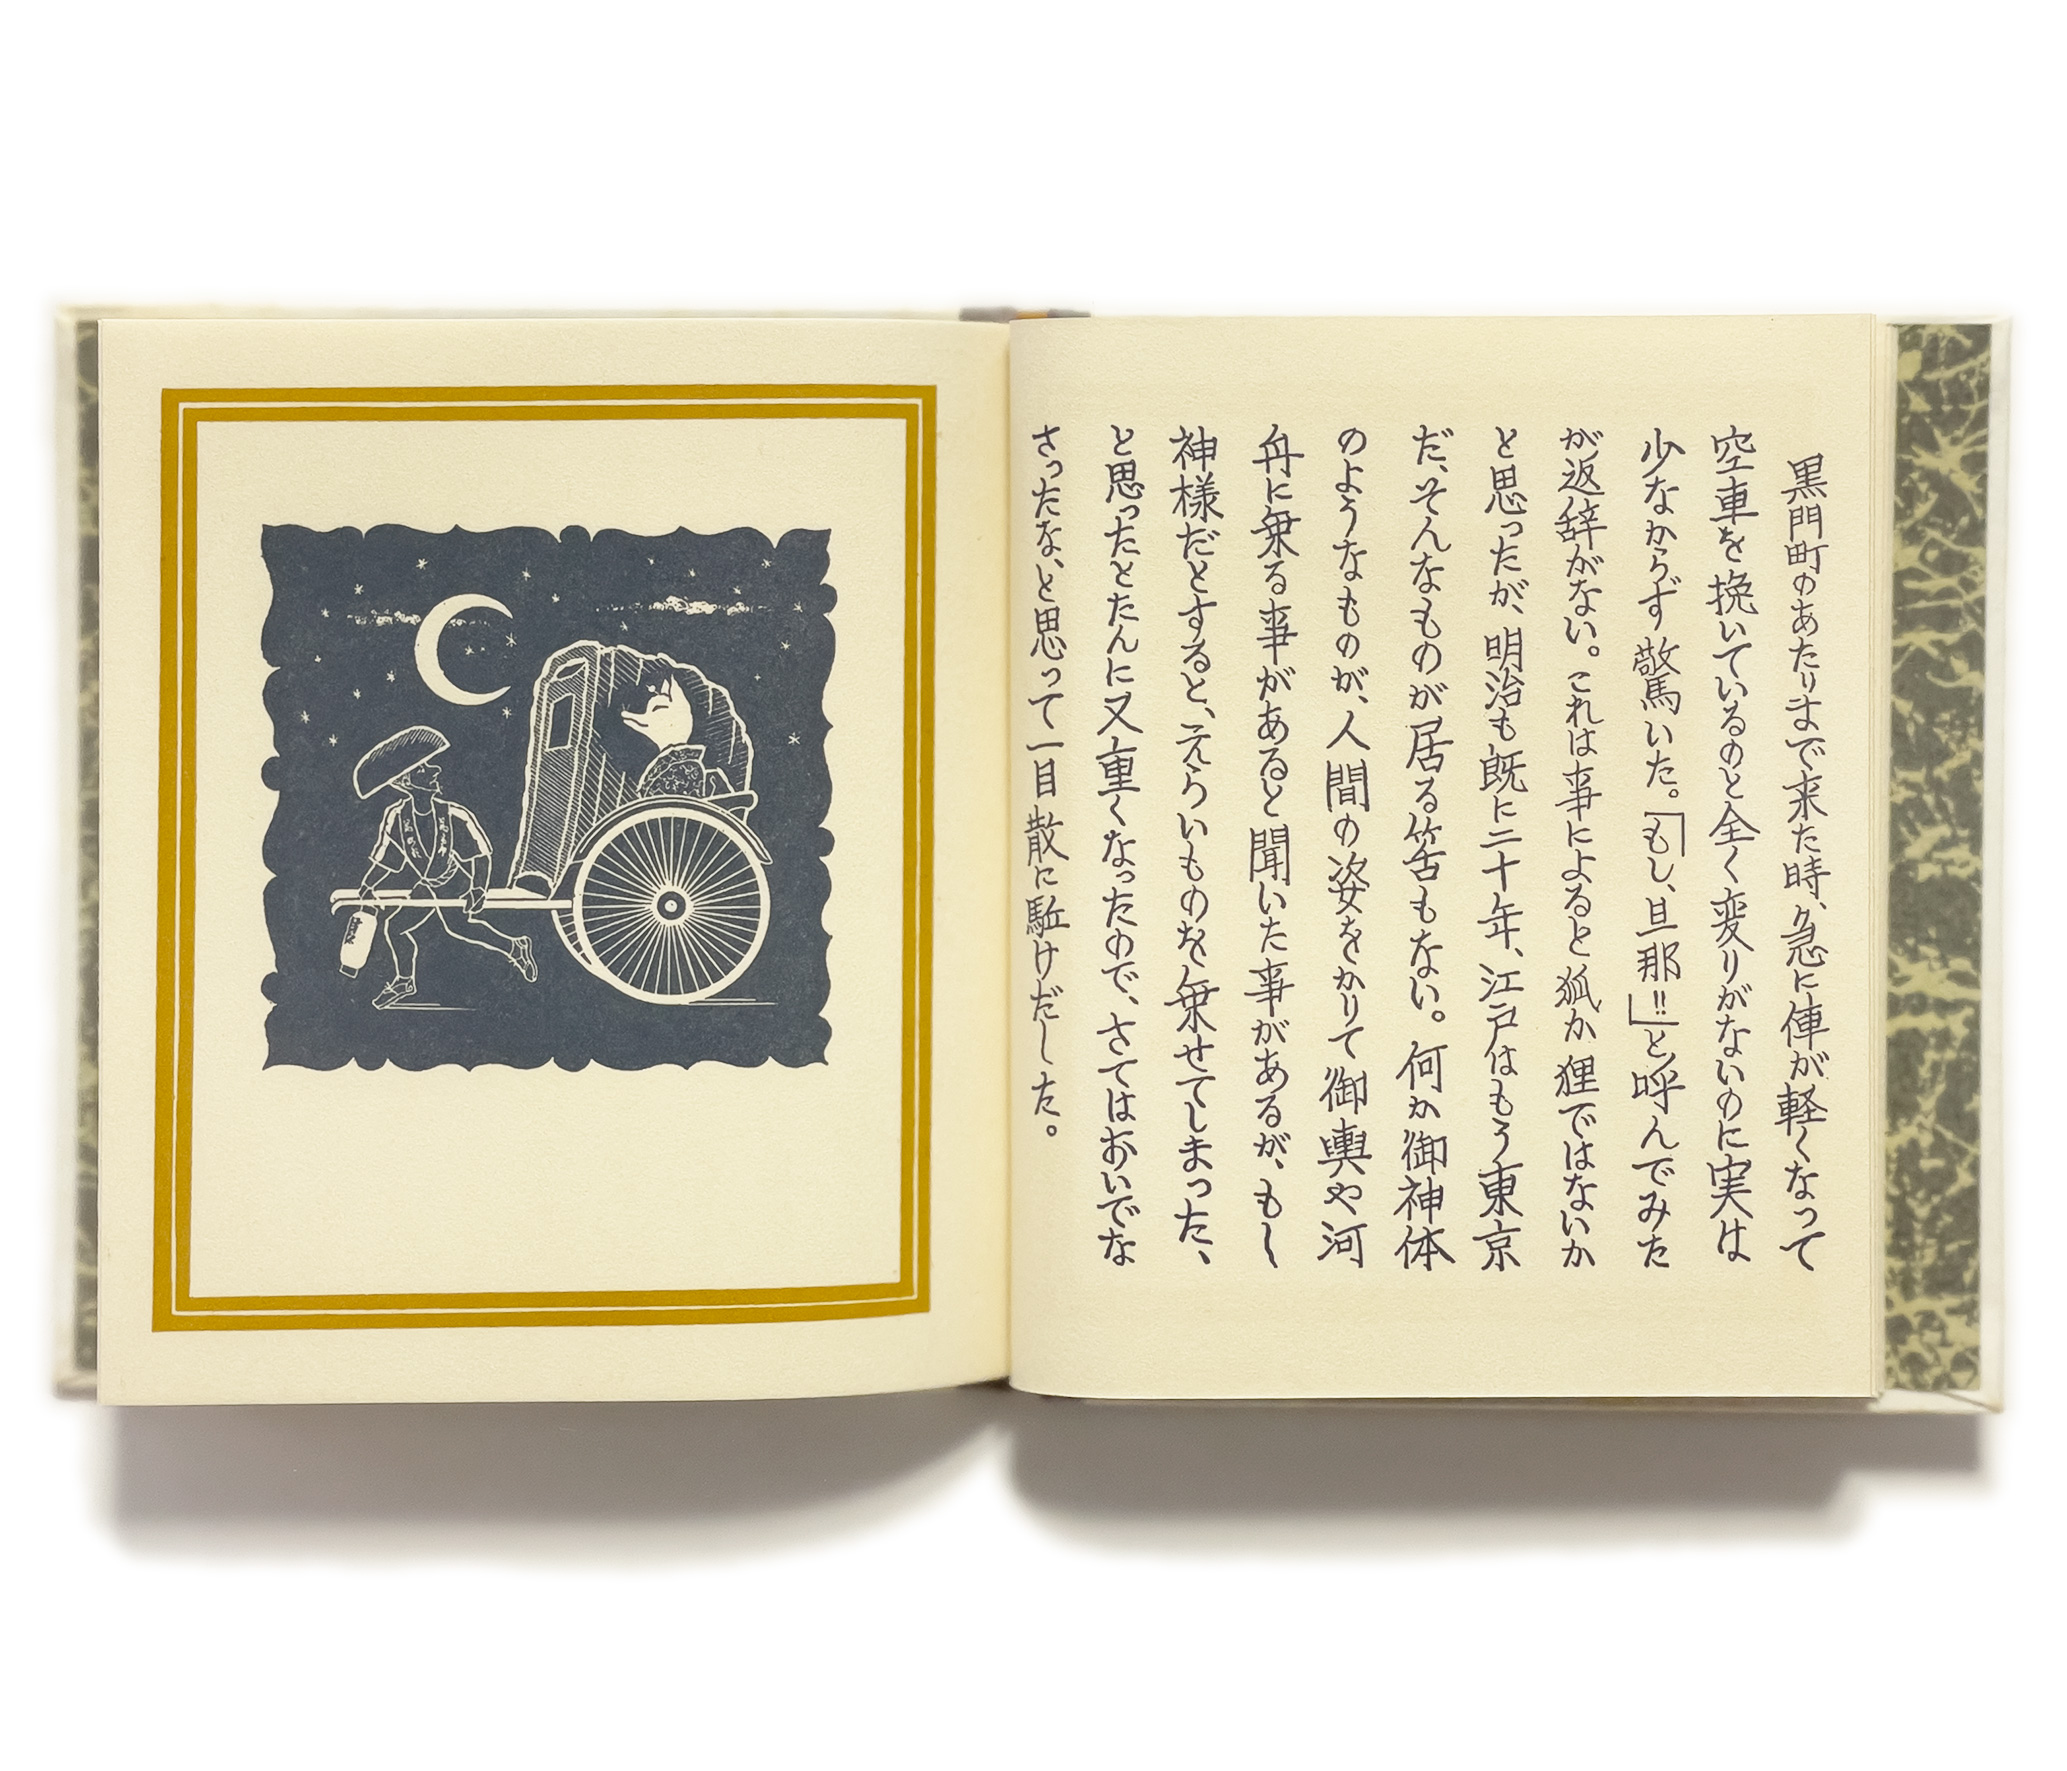 黒門町のあたりまで来た時、急に俥が軽くなって
空車を挽いているのと全く変りがないのに実は
少なからず驚いた。「もし、旦那‼」と呼んでみた
が返辞がない。これは事によると狐か狸ではないか
と思ったが、明治も既に二十年、江戸はもう東京
だ、そんなものが居る筈もない。何か御神体
のようなものが、人間の姿をかりて御輿や河
舟に乗る事があると聞いた事があるが、もし
神様だとすると、えらいものを乗せてしまった、
と思ったとたんに又重くなったので、さてはおいでな
さったな、と思って一目散に駈けだした。